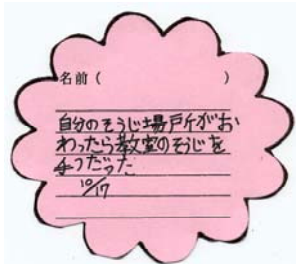 名前(　　　　　　)
自分のそうじ場所がお
わったら教室のそうじを
手つだった
10/17